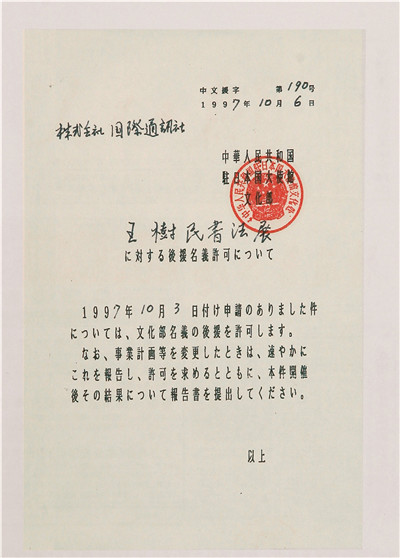 中文援字 第190号
1997年10月6日
株式会社 国際通訊社
中華人民共和国
駐日本国大使館
文化部
王樹民書法展
に対する後援名義許可について
1997年10月3日付け申請のありました件
については、文化部名義の後援を許可します。
なお、事業計画等を変更したときは、速やかに
これを報告し、許可を求めるとともに、本件開催
後その結果について報告書を提出してください。
以上